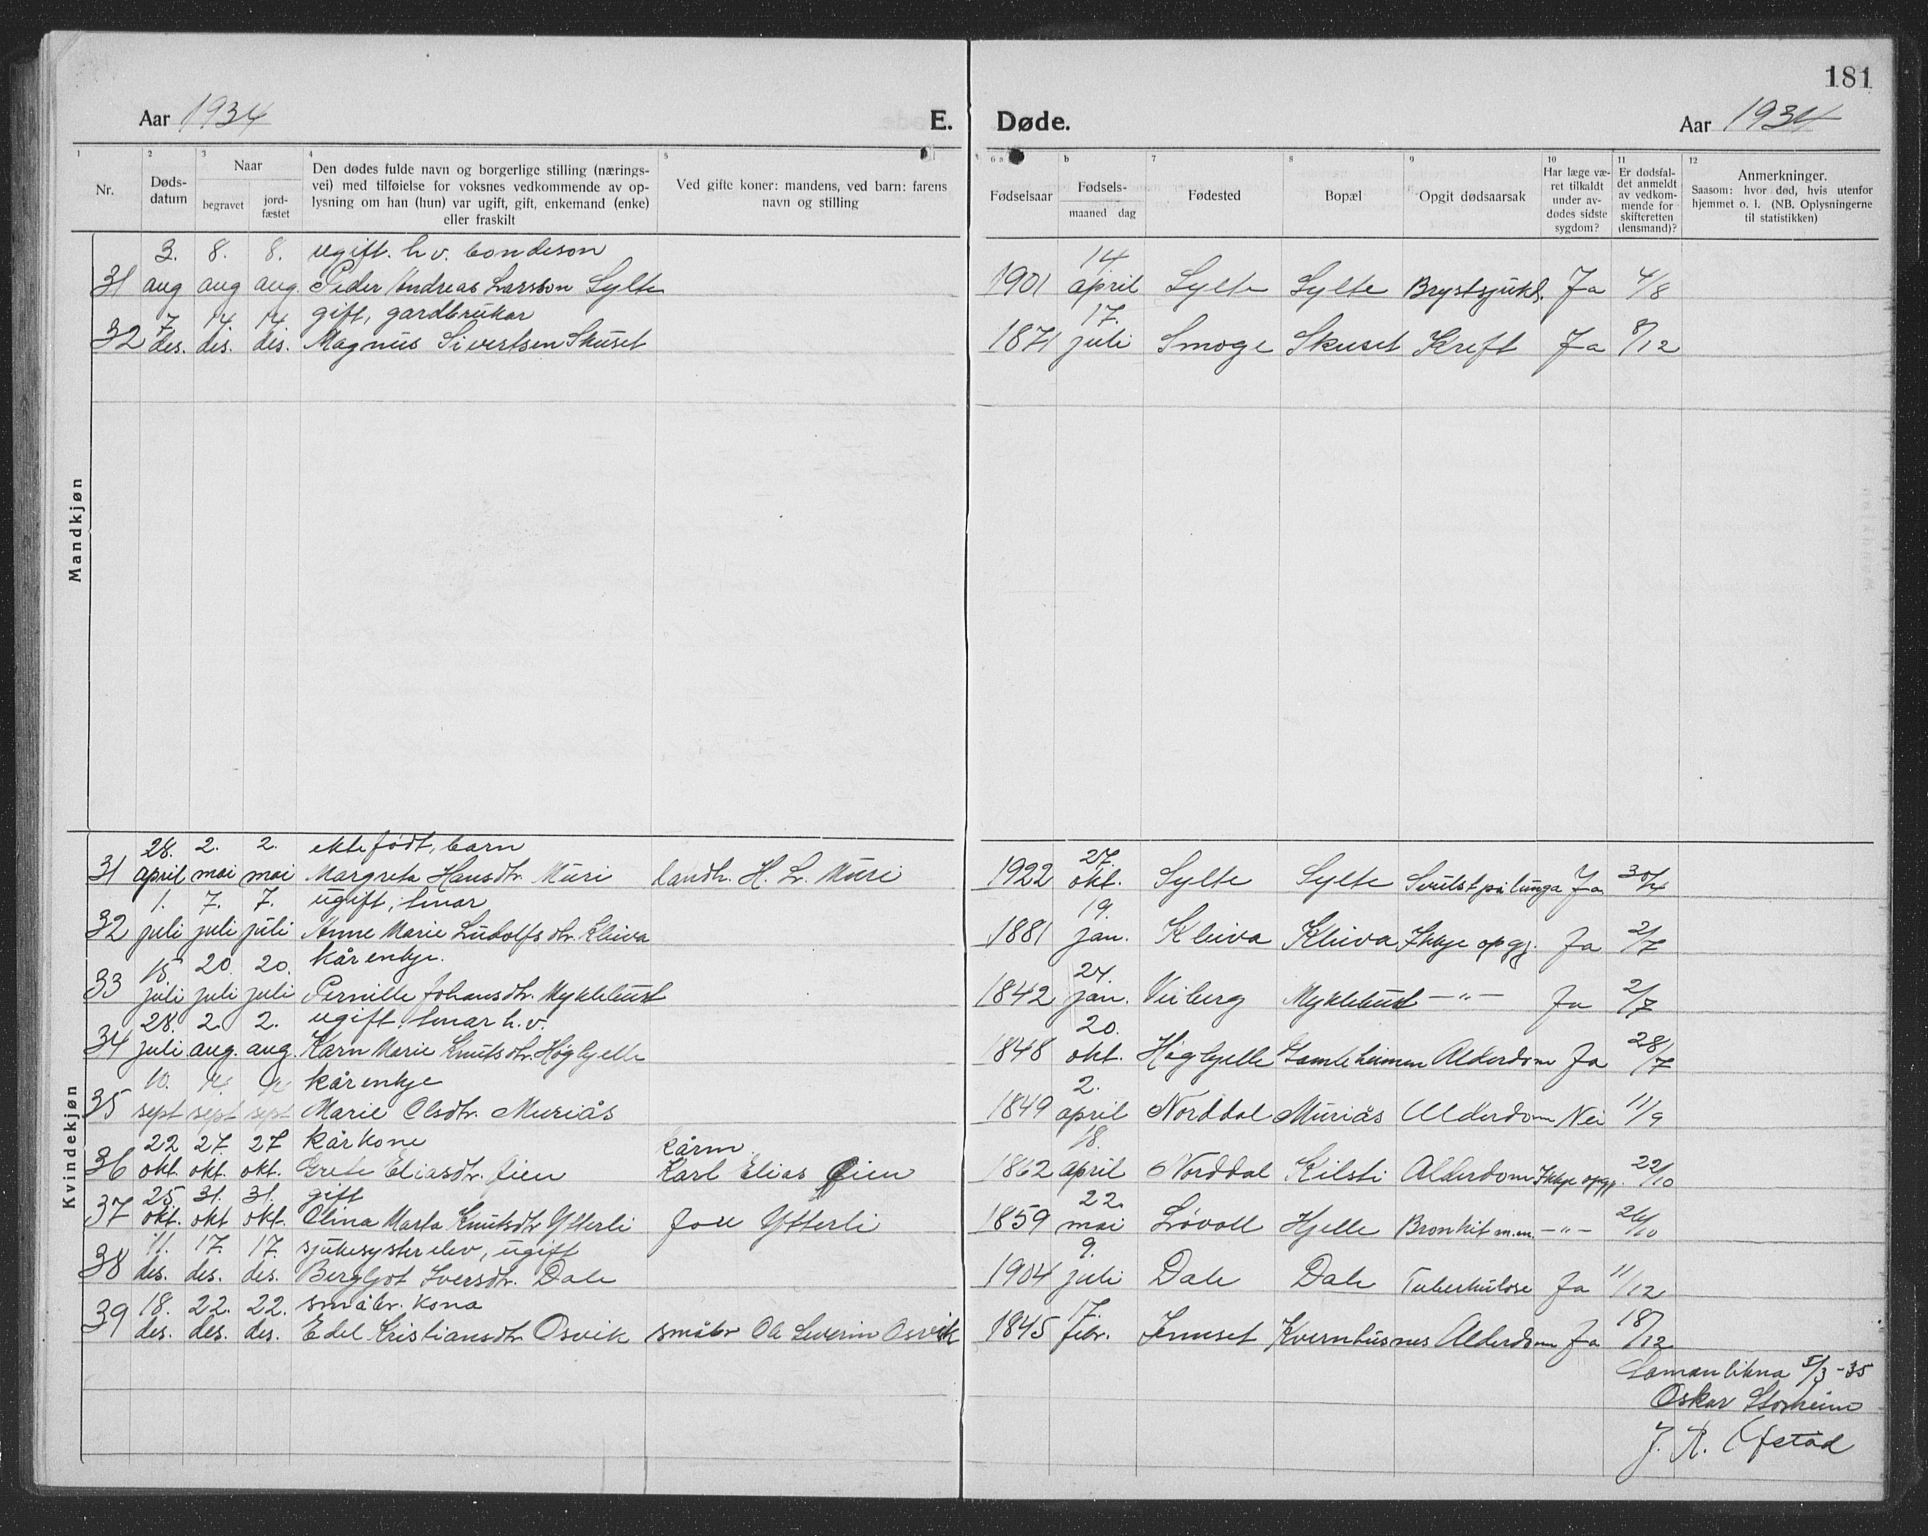 181
Aar 1934 E. Døde. Aar 1934
1 2 3 4 5 6 a b 7 8 9 10 11 12
Nr.
Døds-
datum
Naar
begravet
jord-
fæstet
Den dødes fulde navn og borgerlige stilling (nærings-
vei) med tilføielse for voksnes vedkommende av op-
lysning om han (hun) var ugift, gift, enkemand (enke)
eller fraskilt
Ved gifte koner: mandens, ved barn: farens
navn og stilling
Fødselsaar
Fødsels-
maaned dag
Fødested
Bopæl
Opgit dødsaarsak
Har læge væ-
ret tilkaldt
under av-
dødes sidste
sygdom?
Er dødsfal-
det anmeldt
av vedkom-
mende for
skifteretten
(lensmand)?
Anmerkninger.
Saasom: hvor død, hvis utenfor
hjemmet o. l. (NB. Oplysningerne
til statistikken)
Mandkjøn
3. 8. 8. ugift. h.v. bondeson 14
31 aug aug aug. Peder Andreas Larsson Sylte 1901 april Sylte Sylte Brystsjukd. Ja 4/8
7. 14. 14. gift, gardbrukar 17.
32 des. des. des. Magnus Sivertsen Skuset 1871 juli Smoge Skuset Kreft Ja 8/12
Kvindekjøn
28. 2. 2. ektefødt, barn 27.
31 april mai mai Margreta Hansdtr. Muri landh. H. L. Muri 1922 okt. Sylte Sylte Svulst på lunga Ja 30/4
1. 7. 7. ugift, 19.
32 juli juli juli Anne Marie Ludolfsdtr. Kleiva 1881 jan. Kleiva Kleiva Ikkje opgj. Ja 2/7
15 20. 20. kårenkje. 24.
33 juli juli juli Pernille Johansdtr. Myklebust 1842 jan. Veiberg Myklebust —"— Ja 2/7
28. 2. 2. ugift h.v. 20.
34 juli aug. aug. Karn Marie Knutsdtr. Høgbjelle 1848 okt. Høgbjelle Gamleheimen Alderdom Ja 28/7
10. 14 14 kårenkje 2.
35 sept sept sept Marie Olsdtr. Muriås 1849 april Norddal Muriås Alderdom Nei 11/9
22 27. 27 kårkone kårm. 18.
36 okt. okt. okt. Grete Eliasdtr. Øien Karl Elias Øien 1862 april Norddal Kilsti Alderdom Ikkje opgj. 22/10
25 31. 31. gift 22.
37 okt. okt okt. Olina Marta Knutsdtr Ytterli Ytterli 1859 mai Løvoll Hjelle Bronkit m.m. —"— 26/10
11. 17. 17. sjukesyster elev, ugift 9.
38 des. des. des. Bergljot Iversdtr. Dale 1904 juli Dale Dale Tuberkulose Ja 11/12
18. 22. 22. småbr. kona 17.
39 des. des. des. Edel Kristiansdtr Osvik småbr Ole Severin Osvik 1845 febr. Kvernhusnes Alderdom Ja 18/12
Samanlikna 5/3-35
Oskar Storheim
J. R. Ofstad